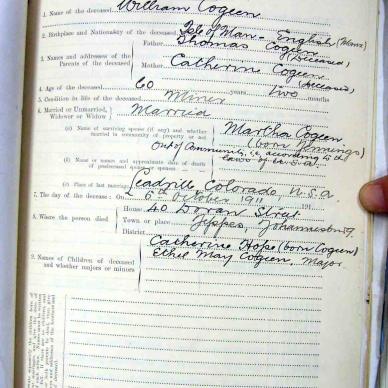 1. Name of the deceased William Cogeen
2. Birthplace and Nationality of the deceased Isle of Man - English (Manx)
3. Names and addresses of the Parents of the deceased Father Thomas Cogeen (Deceased)
Mother Catherine Cogeen (deceased)
4. Age of the deceased 60 years two months
5. Condition in life of the deceased Miner
6. Married or Unmarried, Widower or Widow Married
(a) Name of surviving spouse (if any) and whether married in community of property or not Martha Cogeen
(born Jennings)
Out of Community i.e. according to the
laws of U.S.A.
(b) Name or names and approximate date of death of predeceased spouse or spouses
(c) Place of last marriage Leadville Colorado U.S.A.
7. The day of the decease: On 6th October 1911
8. Where the person died House 40 Doran Street
Town or place Jeppes, Johannesburg
District
9. Names of Children of deceased and whether majors or minors Catherine Hope (born Cogeen)
Ethel May Cogeen, Major